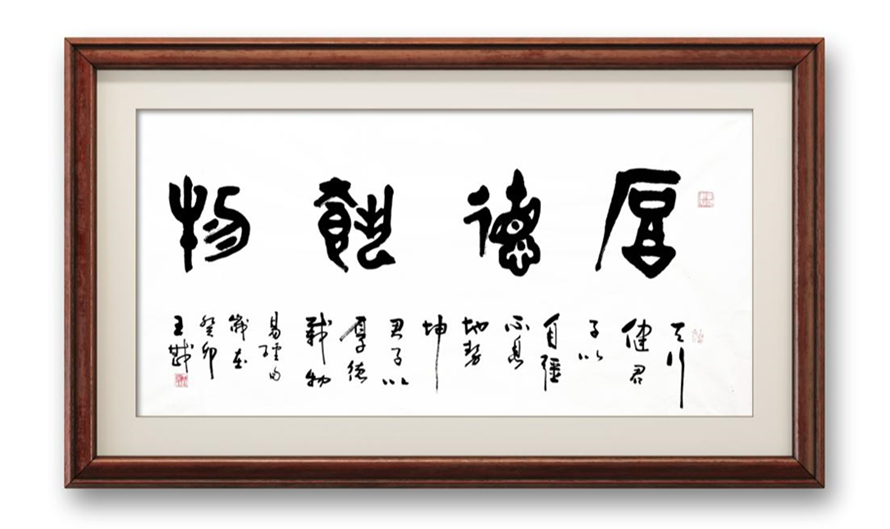 厚德載物
天行
健君
子以
自彊
不息
地势
坤
君子以
厚德
載物
易经句
歲在
癸卯
王